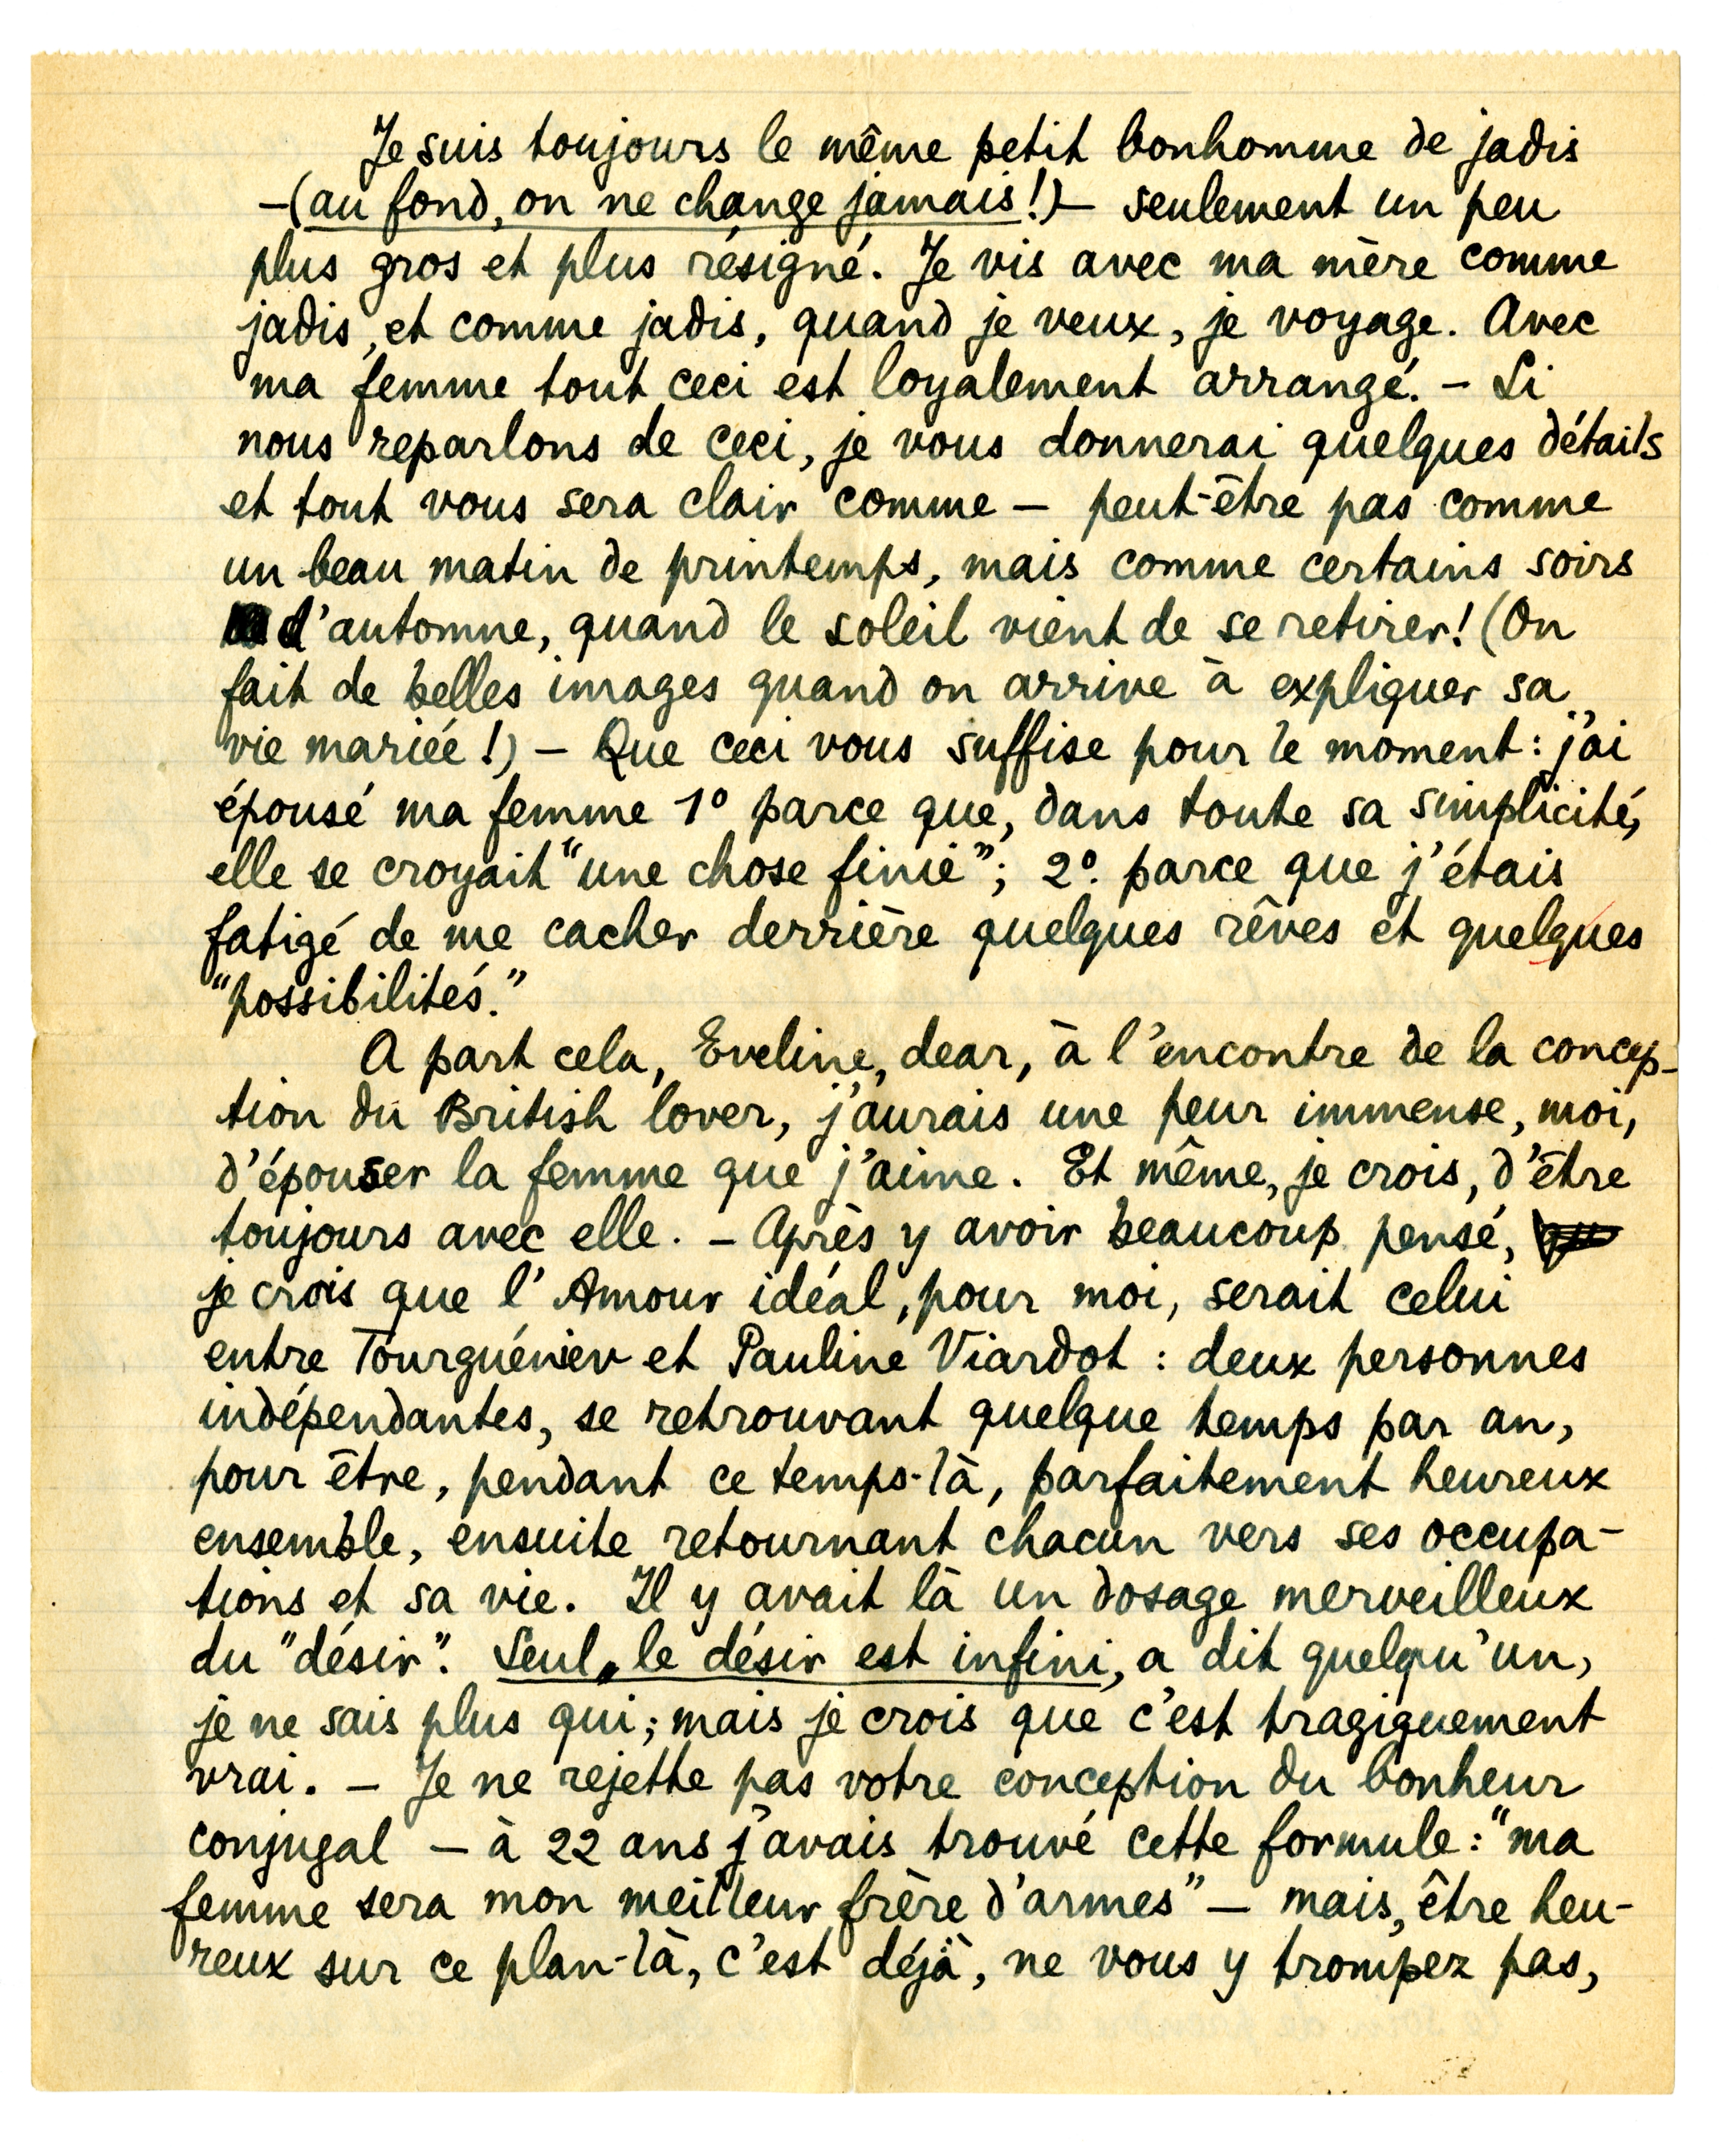 Je suis toujours le même petit bonhomme de jadis
—(au fond, on ne change jamais!)— seulement un peu
plus gros et plus résigné. Je vis avec ma mère comme
jadis, et comme jadis, quand je veux, je voyage. Avec
ma femme tout ceci est loyalement arrangé. — Si
nous reparlons de ceci, je vous donnerai quelques détails
et tout vous sera clair comme — peut-être pas comme
un beau matin de printemps, mais comme certains soirs
d'automne, quand le soleil vient de se retirer! (On
fait de belles images quand on arrive à expliquer sa
vie mariée!) — Que ceci vous suffise pour le moment: j'ai
épousé ma femme 1° parce que, dans toute sa simplicité,
elle se croyait "une chose finie"; 2° parce que j'étais
fatigé de me cacher derrière quelques rêves et quelques
"possibilités."
A part cela, Eveline, dear, à l'encontre de la concep-
tion du British lover, j'aurais une peur immense, moi,
d'épouser la femme que j'aime. Et même, je crois, d'être
toujours avec elle. — Après y avoir beaucoup pensé,
je crois que l'Amour idéal, pour moi, serait celui
entre Tourguéniev et Pauline Viardot : deux personnes
indépendantes, se retrouvant quelque temps par an,
pour être, pendant ce temps-là, parfaitement heureux
ensemble, ensuite retournant chacun vers ses occupa-
tions et sa vie. Il y avait là un dosage merveilleux
du "désir". Seul le désir est infini, a dit quelqu'un,
je ne sais plus qui; mais je crois que c'est tragiquement
vrai. — Je ne rejette pas votre conception du bonheur
conjugal — à 22 ans j'avais trouvé cette formule: "ma
femme sera mon meilleur frère d'armes" — mais, être heu-
reux sur ce plan-là, c'est déjà, ne vous y trompez pas,